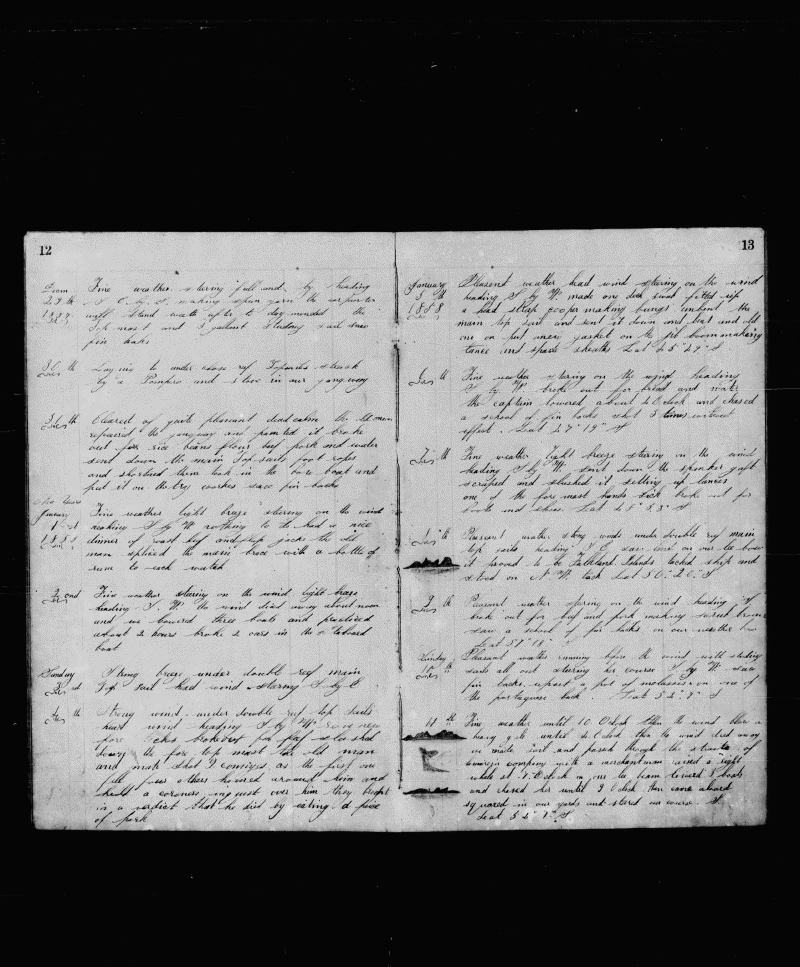 12
Decem
29th
1887
Fine weather stering full and by heading
S. E. by S. making spun yarn the carpenter
will stand watch after to day mended the
Top mast and Gallant Studing sail saw
fin backs
30th
Laying to under close ref Topsails struck
by a Pampero and stove in our gangway
31th
Cleared of quite pleasant dead calm the old man
repaired the gangway and painted it broke
out for rice beans flour beef pork and water
sent down the main Top sails foot ropes
and shortned them took in the bow boat and
put it on the try workes saw fin backs
New Years
January
1st
1888
Fine weather light breze stering on the wind
heading S by W nothing to do had a nice
dinner of roast beef and flap jacks the old
man spliced the main brace with a bottle of
rum to each watch
2ond
Fine weather stering on the wind light breze
heading S. W the wind died away about noon
and we lowered three boats and practised
about 2 hours broke 2 oars in the Starboard
boat
Sunday
3rd
Strong breze under double ref main
Top sail head wind Staring S by E
4th
Strong wind under double ref top sails
head wind heading S by W
slushed
down the fore top mast the old man
and mate shot
others hovered around him and
held a coroners inquest over him they brought
in a verdict that he died by eating a piece
of pork
13
January
5th
1888
Pleasent weather head wind stering on the wind
heading S by W made one deck swab fitted up
a head strap cooper making bungs unbent the
main top sail and sent it down and bent and old
one on put anew gasket on the jib boom making
lance and spade sheaths Lat 45" 29" S
6th
Fine weather stering on the wind heading
S by W broke out for bread and water
the captain lowered about 4 Oclock and chased
a school of fin backs shot 3 times without
effect. Lat 47" 19" S
7th
Fine weather light breeze stering on the wind
heading S by W sent down the spanker gaft
scraped and slushed it setting up lances
one of the fore mast hands sick broke out for
boots and shoes Lat 48" 53" S
8th
Pleasent weather strong winds under double ref main
top sails heading S E saw land on our lee bow
it proved to be Falkland Islands tacked ship and
stood on N W tack Lat 50" 20" S
9th
Pleasent weather stering on the wind heading S
broke out for beef and pork making
saw a school of fin backs on our weather bow
Lat 51" 18" S
Sunday
10th
Pleasant weather running before the wind with studing
sails all out stering her course S by W saw
fin backs upset a pot of molasses on one of
the portuguese back. Lat 52" 7" S
11th
Fine weather until 10 Oclock then the wind blew a
heavy gale until 4 Oclock then the wind died away
we made land and passed through the straits of
in company with a merchantman raised a right
whale at Oclock on our lee beam lowered 3 boats
and chased her until 9 Oclock then came aboard
squared in our yards and stered our course S.
Lat 54" 7" S